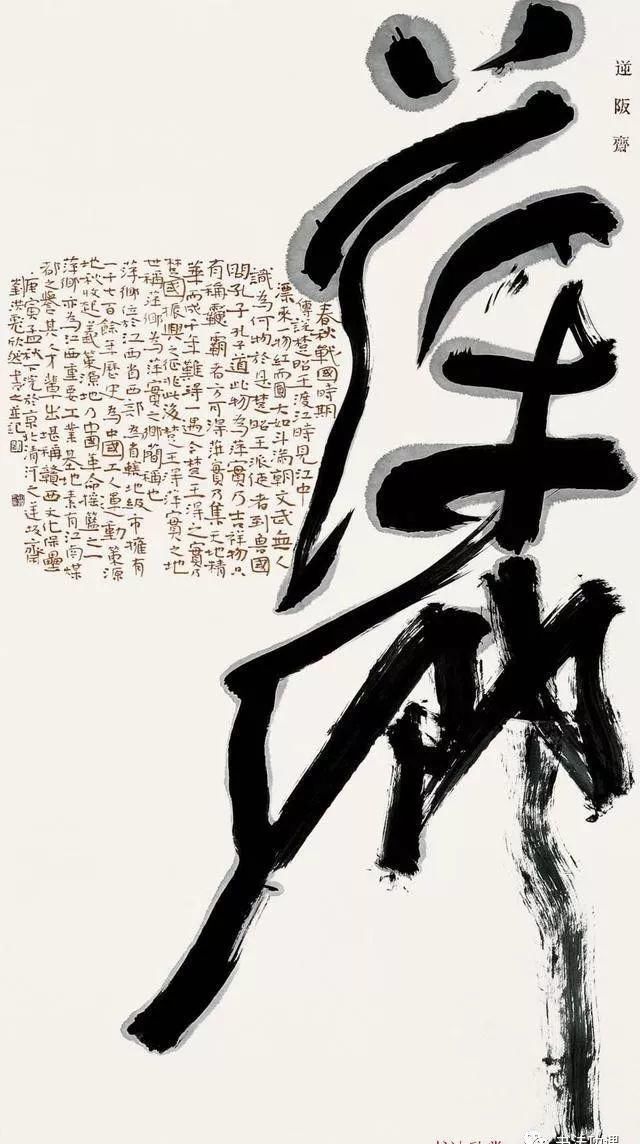 逆阪齋
萍鄉
春秋戰國時期
傳說楚昭王渡江時見江中
漂來一物紅而圓大如斗滿朝文武無人
識為何物於是楚昭王派使者到魯國
問孔子孔子道此物為萍實乃吉祥物只
有稱霸者方可得萍實乃集天地精
華而成千年難得一遇今楚王得之實乃
楚國振興之徵兆此後楚王得萍實之地
世稱萍鄉為萍實之鄉簡稱也
萍鄉位於江西省西部為省轄地級市擁有
一千七百餘年歷史為中國工人運動策源
地秋收起義策源地乃中國革命搖籃之一
萍鄉亦為江西重要工業基地素有江南煤
都之譽其人才輩出堪稱贛西文化保壘
庚寅孟秋下浣於京北清河之逆阪齋
劉洪彪欣然書之並記